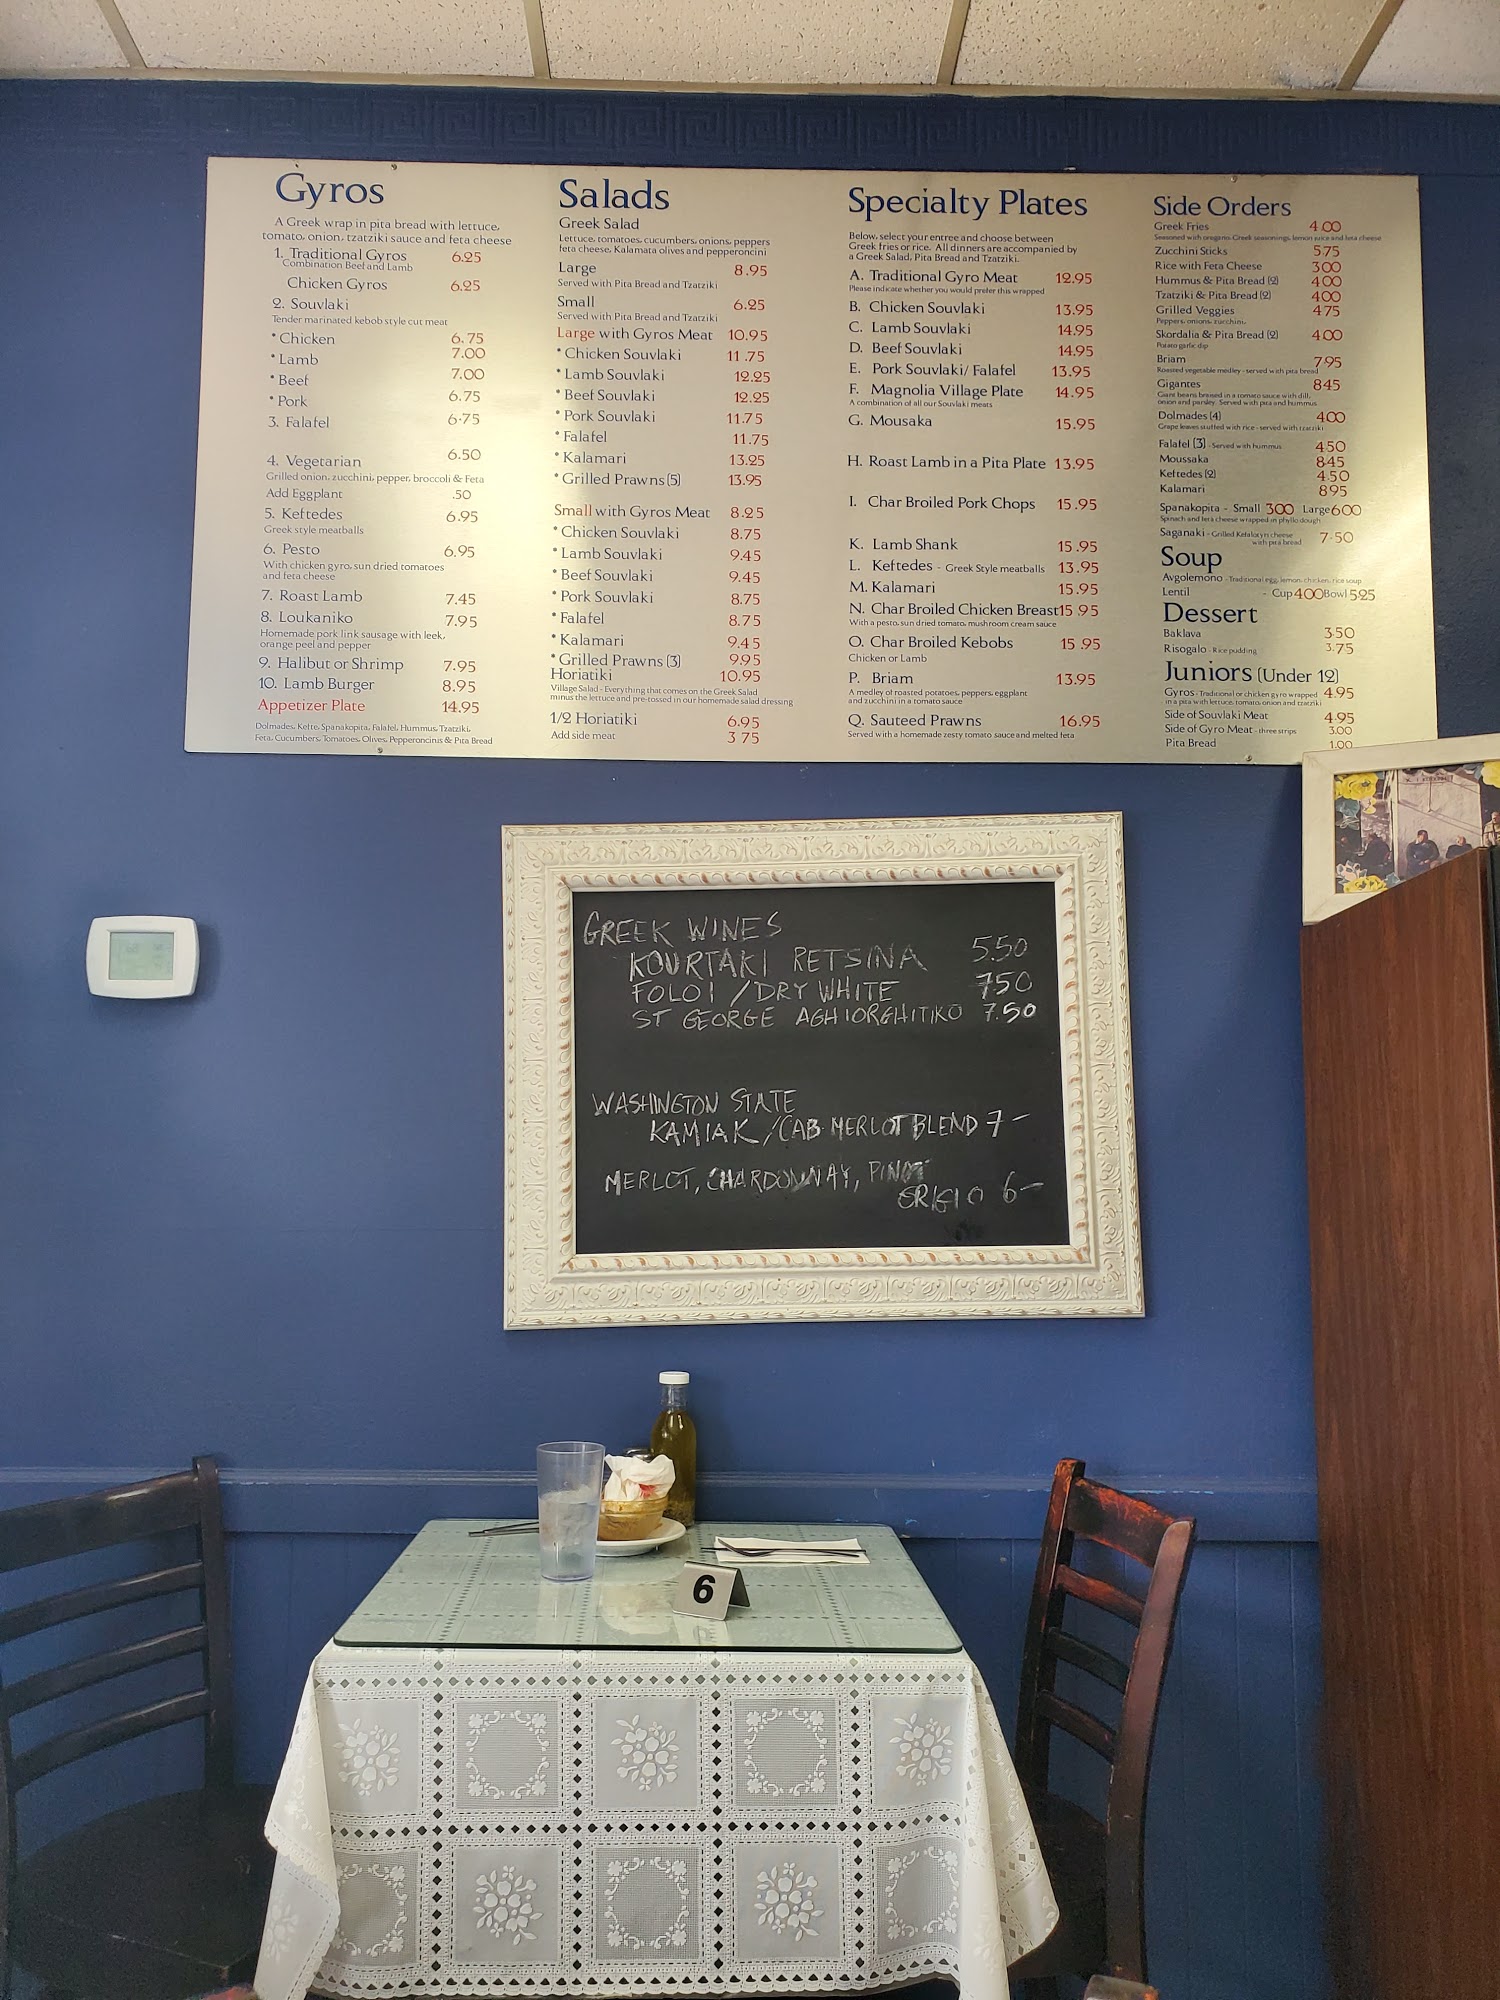 Gyros
A Greek wrap in pita bread with lettuce,
tomato, onion, tzatziki sauce and feta cheese
1. Traditional Gyros 6.25
Combination Beef and Lamb
Chicken Gyros 6.25
2. Souvlaki
Tender marinated kebob style cut meat
*Chicken 6.75
*Lamb 7.00
*Beef 7.00
*Pork 6.75
3. Falafel 6.75
4. Vegetarian 6.50
Grilled onion, zucchini, pepper, broccoli & Feta
Add Eggplant .50
5. Keftedes 6.95
Greek style meatballs
6. Pesto 6.95
With chicken gyro, sun dried tomatoes
and feta cheese
7. Roast Lamb 7.45
8. Loukaniko 7.95
Homemade pork link sausage with leek,
orange peel and pepper
9. Halibut or Shrimp 7.95
10. Lamb Burger 8.95
Appetizer Plate 14.95
Dolmades, Kefte, Spanakopita, Falafel, Hummus, Tzatziki,
Feta, Cucumbers, Tomatoes, Olives, Pepperoncinis & Pita Bread
Salads
Greek Salad
Lettuce, tomatoes, cucumbers, onions, peppers
feta cheese, Kalamata olives and pepperoncini
Large 8.95
Served with Pita Bread and Tzatziki
Small 6.25
Served with Pita Bread and Tzatziki
Large with Gyros Meat 10.95
*Chicken Souvlaki 11.75
*Lamb Souvlaki 12.25
*Beef Souvlaki 12.25
*Pork Souvlaki 11.75
*Falafel 11.75
*Kalamari 13.25
*Grilled Prawns (5) 13.95
Small with Gyros Meat 8.25
*Chicken Souvlaki 8.75
*Lamb Souvlaki 9.45
*Beef Souvlaki 9.45
*Pork Souvlaki 8.75
*Falafel 8.75
*Kalamari 9.45
*Grilled Prawns (3) 9.95
Horiatiki 10.95
Village Salad - Everything that comes on the Greek Salad
minus the lettuce and pre-tossed in our homemade salad dressing
1/2 Horiatiki 6.95
Add side meat 3 75
Specialty Plates
Below, select your entree and choose between
Greek fries or rice. All dinners are accompanied by
a Greek Salad, Pita Bread and Tzatziki.
A. Traditional Gyro Meat 12.95
Please indicate whether you would prefer this wrapped
B. Chicken Souvlaki 13.95
C. Lamb Souvlaki 14.95
D. Beef Souvlaki 14.95
E. Pork Souvlaki/ Falafel 13.95
F. Magnolia Village Plate 14.95
A combination of all our Souvlaki meats
G. Mousaka 15.95
H. Roast Lamb in a Pita Plate 13.95
I. Char Broiled Pork Chops 15.95
K. Lamb Shank 15.95
L. Keftedes - Greek Style meatballs 13.95
M. Kalamari 15.95
N. Char Broiled Chicken Breast 15 95
With a pesto, sun dried tomato, mushroom cream sauce
O. Char Broiled Kebobs 15 .95
Chicken or Lamb
P. Briam 13.95
A medley of roasted potatoes, peppers, eggplant
and zucchini in a tomato sauce
Q. Sauteed Prawns 16.95
Served with a homemade zesty tomato sauce and melted feta
Side Orders
Greek Fries 4 00
Seasoned with oregano, Greek seasonings, lemon juice and feta cheese
Zucchini Sticks 5 75
Rice with Feta Cheese 3 00
Hummus & Pita Bread (2) 4 00
Tzatziki & Pita Bread (2) 4 00
Grilled Veggies 4 75
Peppers, onions, zucchini,
Skordalia & Pita Bread (2) 4 00
Potato garlic dip
Briam 7.95
Roasted vegetable medley - served with pita bread
Gigantes 8 45
Giant beans braised in a tomato sauce with dill,
onion and parsley. Served with pita and hummus
Dolmades (4) 4 00
Grape leaves stuffed with rice - served with tzatziki
Falafel (3) - Served with hummus 4 50
Moussaka 8 45
Keftedes (2) 4 50
Kalamari 8 95
Spanakopita - Small 3 00 Large 6 00
Spinach and feta cheese wrapped in phyllo dough
Saganaki - Grilled Kefalotyri cheese 7.50
with pita bread
Soup
Avgolemono - Traditional egg, lemon, chicken, rice soup
Lentil - Cup 4 00 Bowl 5 25
Dessert
Baklava 3.50
Risogalo - Rice pudding 3.75
Juniors (Under 12)
Gyros - Traditional or chicken gyro wrapped 4.95
in a pita with lettuce, tomato, onion and tzatziki
Side of Souvlaki Meat 4.95
Side of Gyro Meat - three strips 3.00
Pita Bread 1.00
GREEK WINES
KOURTAKI RETSINA 5.50
FOLOI / DRY WHITE 7.50
ST GEORGE AGHIORGHITIKO 7.50
WASHINGTON STATE
KAMIAK / CAB MERLOT BLEND 7-
MERLOT, CHARDONNAY, PINOT
GRIGIO 6-
6